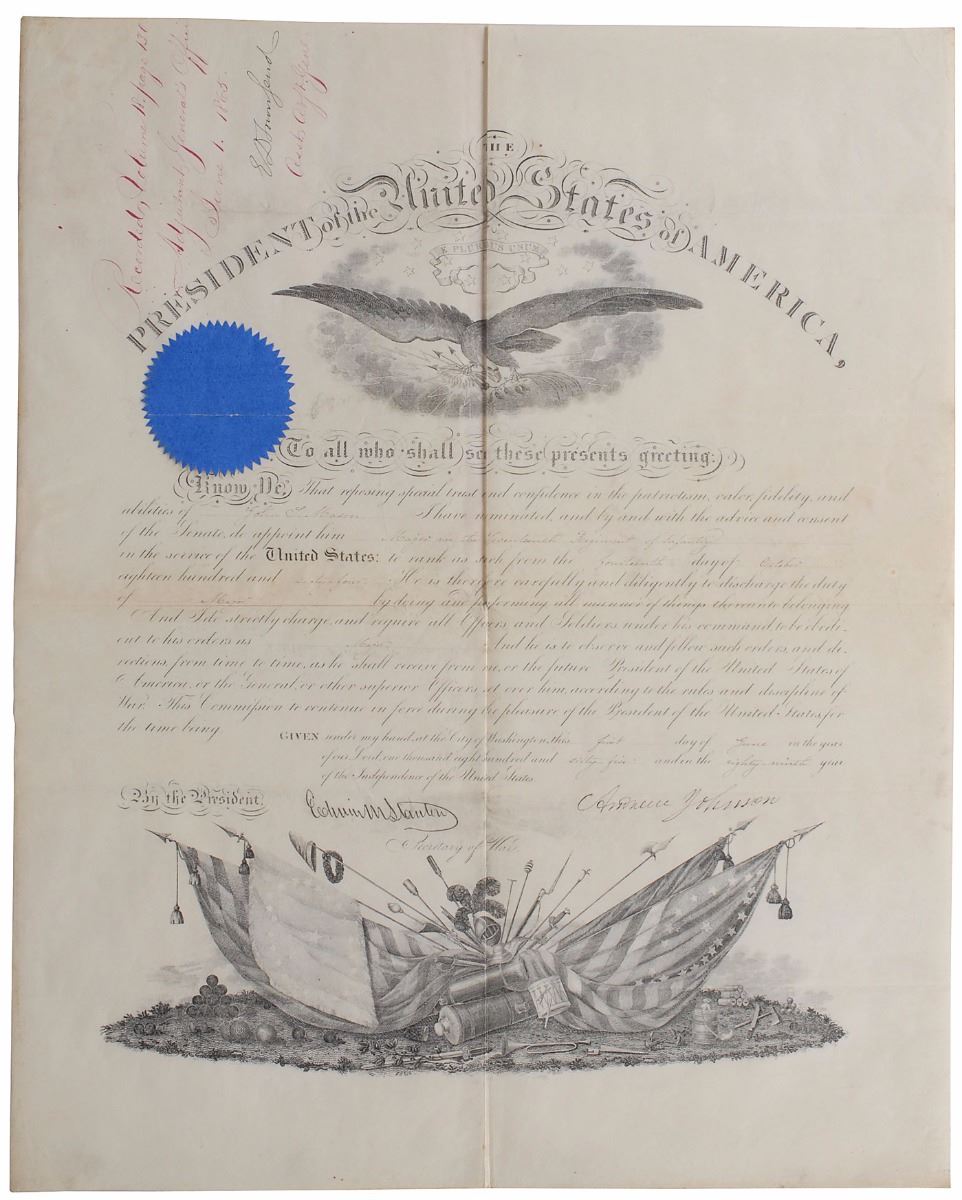 Recorded, Volume 12, page 130
Adjutant General's Office
June 1. 1865.
E D Townsend
Asst. Adjt. Genl.
THE
PRESIDENT of the United States of AMERICA,
E PLURIBUS UNUM
To all who shall see these presents greeting:
Know Ye, That reposing special trust and confidence in the patriotism, valor, fidelity, and
abilities of John S. Mason I have nominated, and by and with the advice and consent
of the Senate, do appoint him Major in the Seventeenth Regiment of Infantry
in the service of the United States: to rank as such from the fourteenth day of October
eighteen hundred and sixty four. He is therefore carefully and diligently to discharge the duty
of Major by doing and performing all manner of things thereunto belonging
And I do strictly charge, and require all Officers and Soldiers under his command, to be obedi-
ent to his orders as Major And he is to observe and follow such orders, and di-
rections, from time to time, as he shall receive from me, or the future President of the United States of
America, or the General, or other superior Officers set over him, according to the rules and discipline of
War. This Commission to continue in force during the pleasure of the President of the United States for
the time being
GIVEN under my hand, at the City of Washington, this first day of June in the year
of our Lord, one thousand eight hundred and sixty five: and in the eighty-ninth year
of the Independence of the United States
By the President,
Andrew Johnson
Edwin M Stanton
Secretary of War.